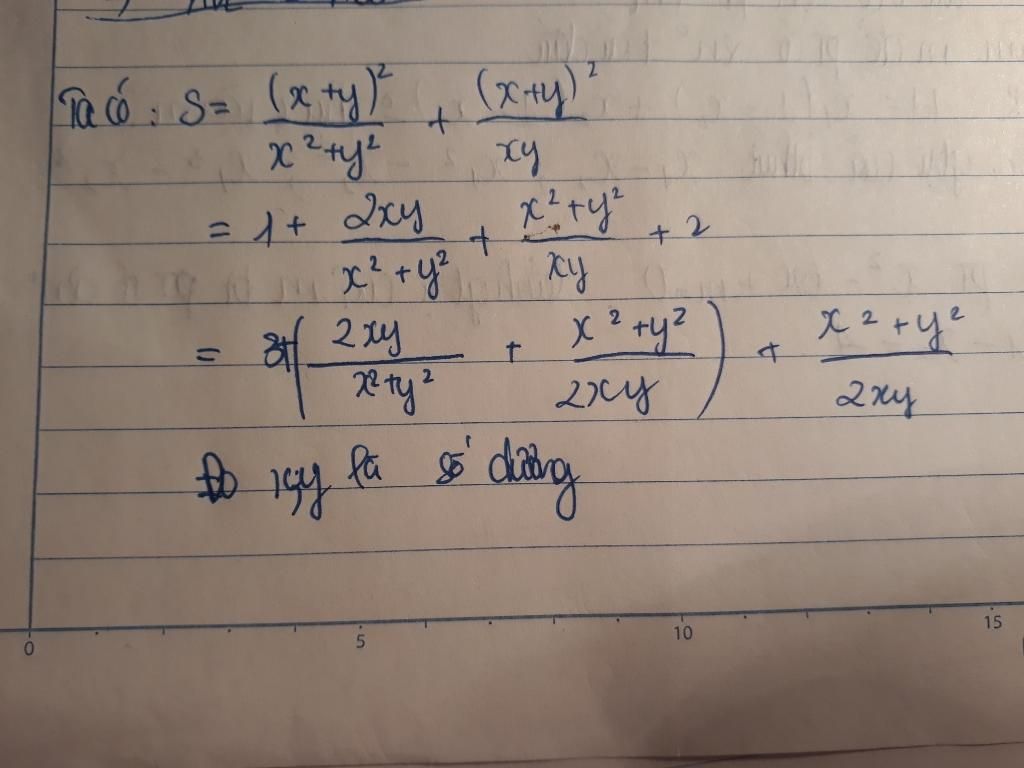 Ta có : S = (x+y)²/(x²+y²) + (x+y)²/xy
= 1 + 2xy/(x²+y²) + (x²+y²)/xy + 2
= 3+(2xy/(x²+y²) + (x²+y²)/2xy) + (x²+y²)/2xy
Do x,y là số dương
0 5 10 15